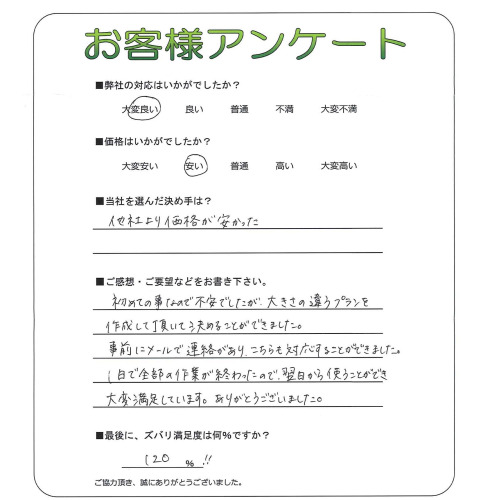 お客様アンケート
■弊社の対応はいかがでしたか？
大変良い 良い 普通 不満 大変不満
■価格はいかがでしたか？
大変安い 安い 普通 高い 大変高い
■当社を選んだ決め手は？
他社より価格が安かった
■ご感想・ご要望などをお書き下さい。
初めての事なので不安でしたが、大きさの違うプランを
作成して頂いて決めることができました。
事前にメールで連絡があり、こちらも対応することができました。
1日で全部の作業が終わったので、翌日から使うことができ
大変満足しています。ありがとうございました。
■最後に、ズバリ満足度は何％ですか？
120 ％!!
ご協力頂き、誠にありがとうございました。